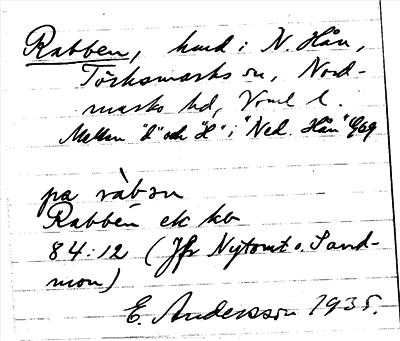 Rabben, hmd i N. Hån,
Töcksmarks sn, Nord-
marks hd, Vrml l.
Mellan "d" och "H" i "Ned. Hån" Gag
pa ràbm
Rabben ek kb
84:12 (Jfr Nytomt o. Sand-
mon)
E. Andersson 1935.